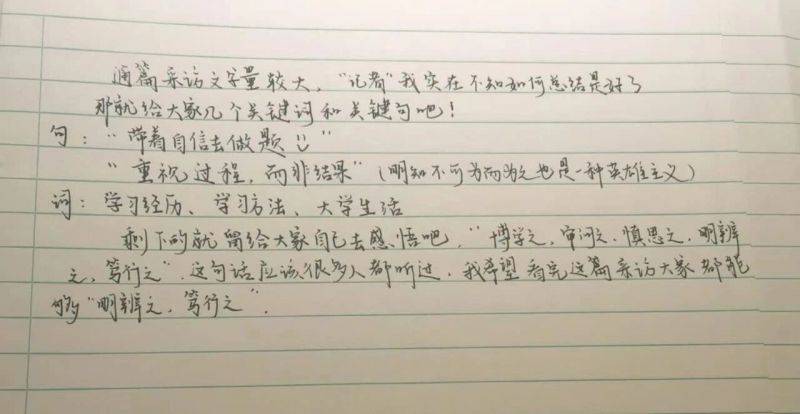 通篇采访文字量较大，“记者”我实在不知如何总结是好了
那就给大家几个关键词和关键句吧！
句：“带着自信去做题”
“重视过程，而非结果”（明知不可为而为之也是一种英雄主义）
词：学习经历、学习方法、大学生活
剩下的就留给大家自己去感悟吧，“博学之，审问之，慎思之，明辨
之，笃行之”这句话应该很多人都听过，我希望看完这篇采访大家都能
够“明辨之，笃行之”.